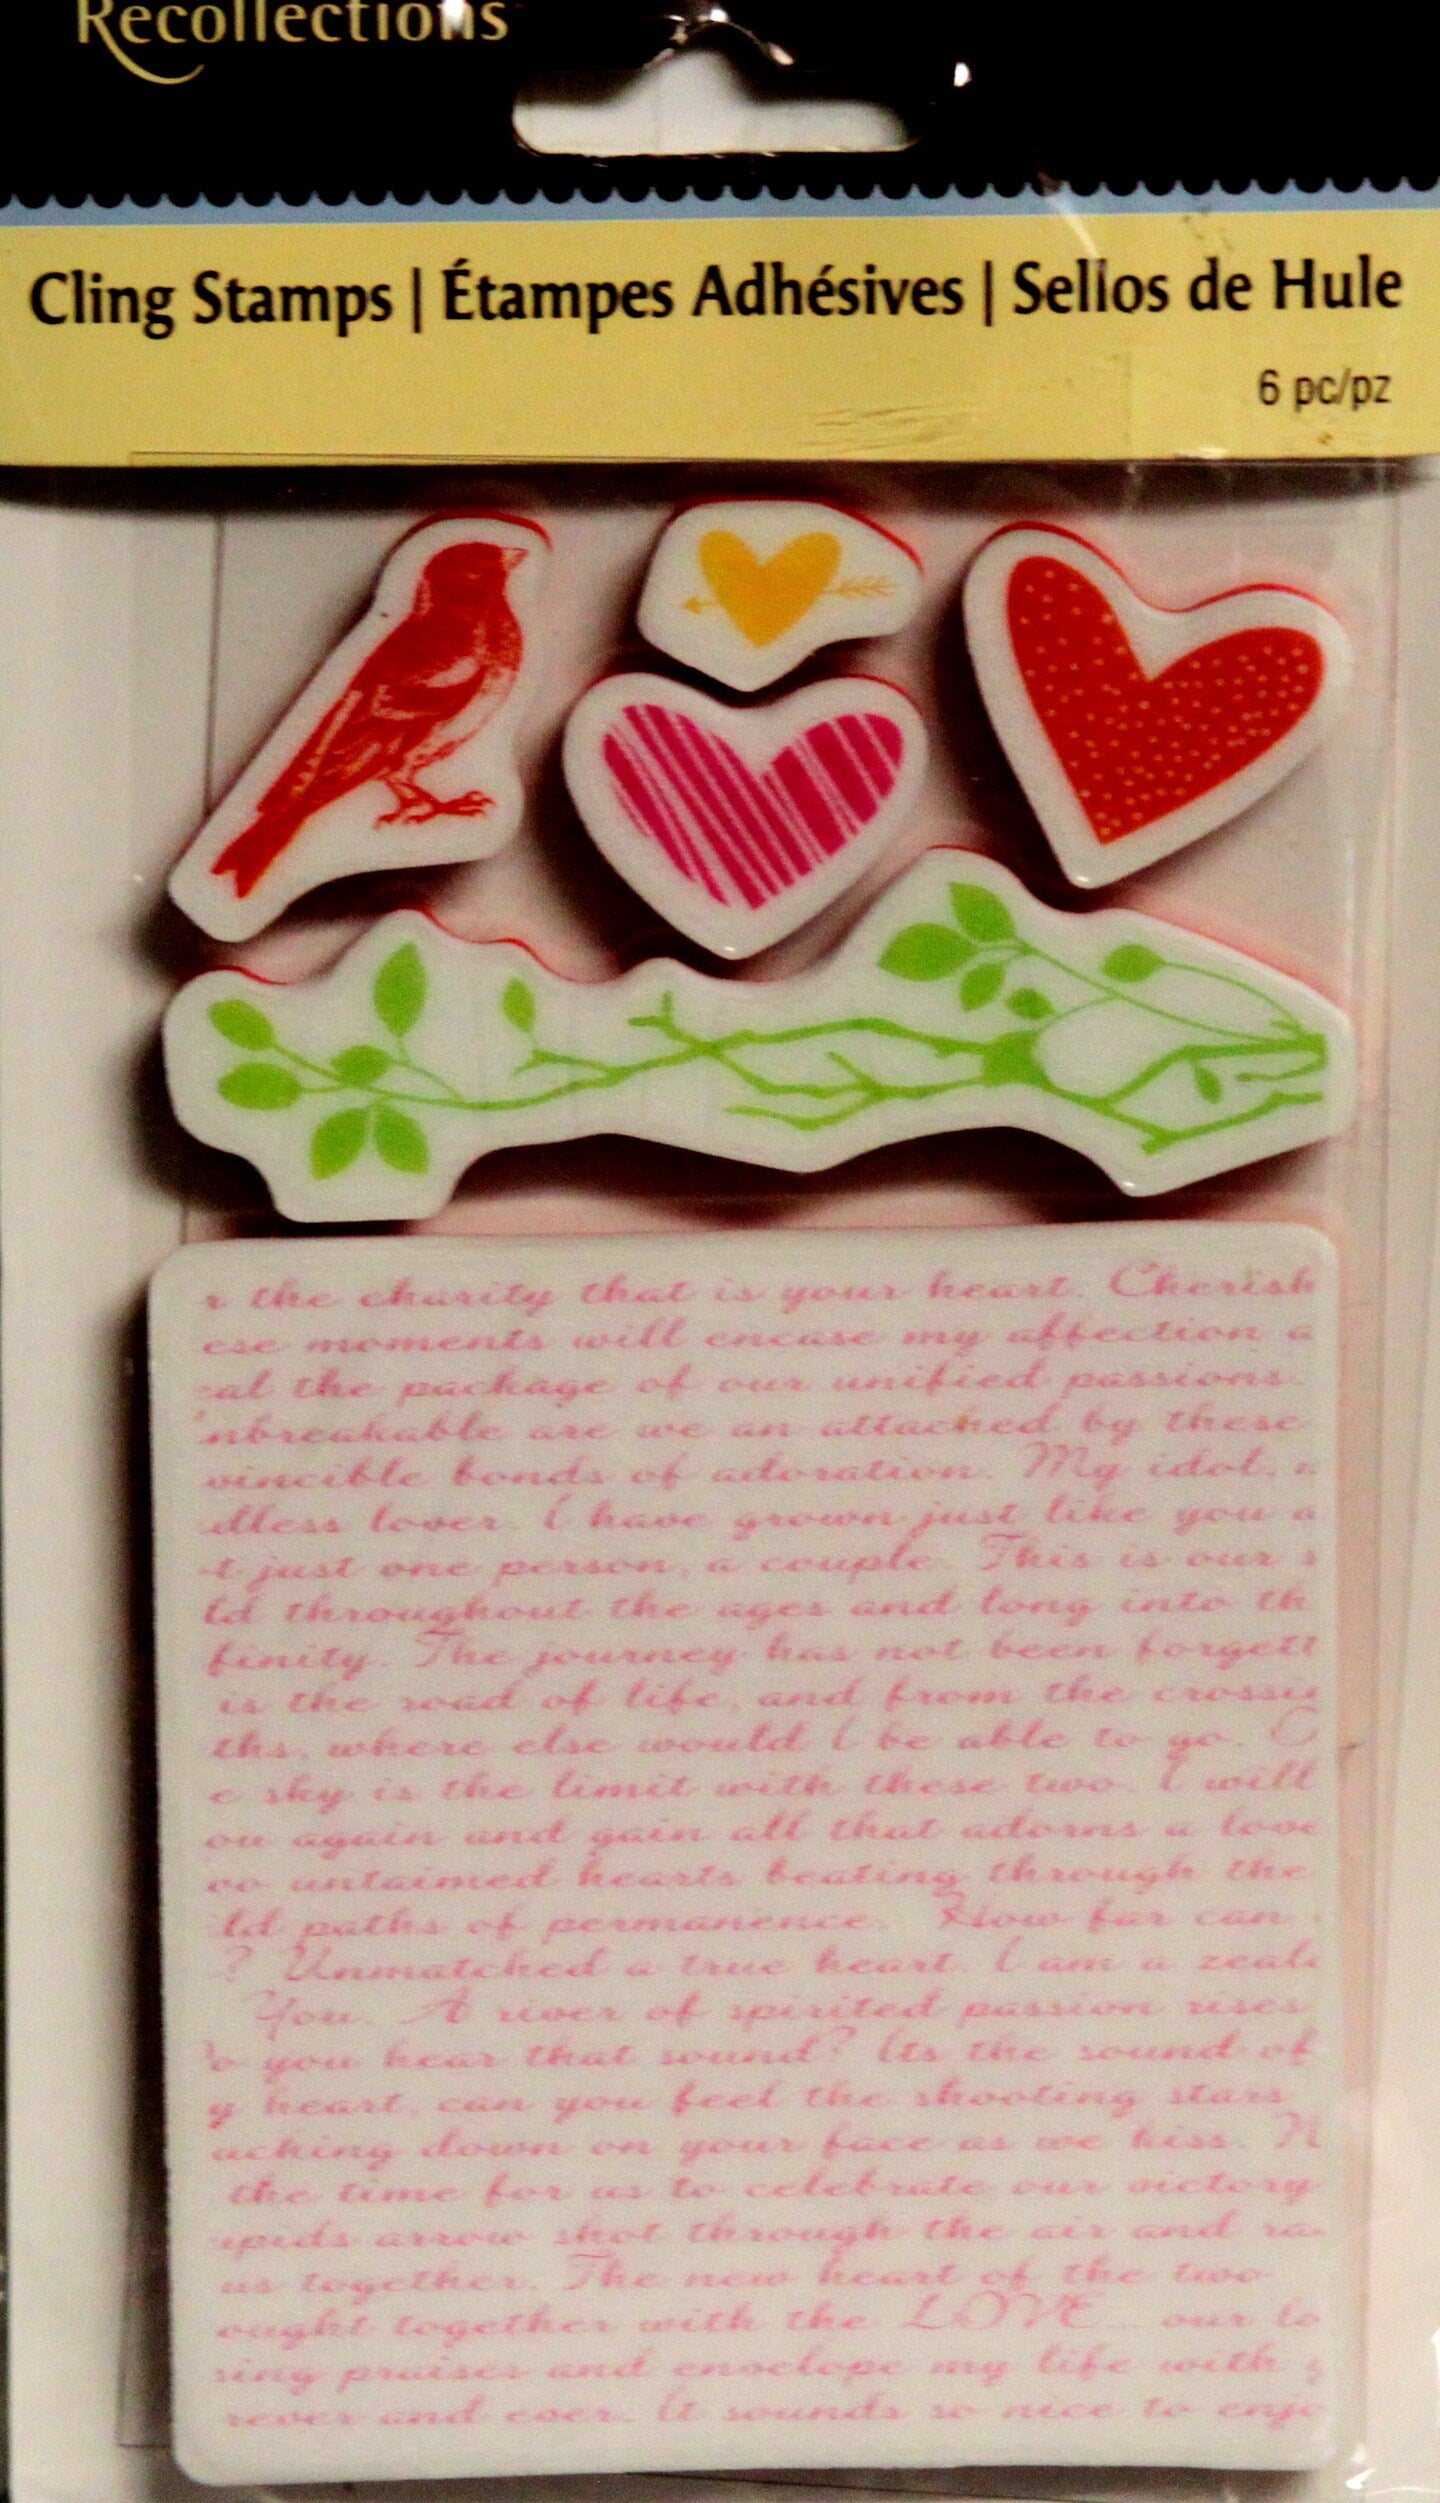 Recollections
Cling Stamps | Étampes Adhésives | Sellos de Hule
6 pc/pz
r the charity that is your heart. Cherish
ese moments will encase my affection a
eal the package of our unified passions.
nbreakable are we an attached by these
vincible bonds of adoration. My idol, n
dless lover. I have grown just like you a
t just one person, a couple. This is our s
ld throughout the ages and long into th
finity. The journey has not been forgett
is the road of life, and from the crossi
ths, where else would I be able to go. O
e sky is the limit with these two. I will
ou again and gain all that adorns a love
oo untaimed hearts beating through the
ild paths of permanence. How far can
? Unmatched a true heart. I am a zeal
You. A river of spirited passion rises
o you hear that sound? Its the sound of
y heart, can you feel the shooting stars
aching down on your face as we kiss. N
the time for us to celebrate our victory
upids arrow shot through the air and ra
us together. The new heart of the two
ought together with the LOVE... our lo
sing praises and envelope my life with
rever and ever. It sounds so nice to enjo